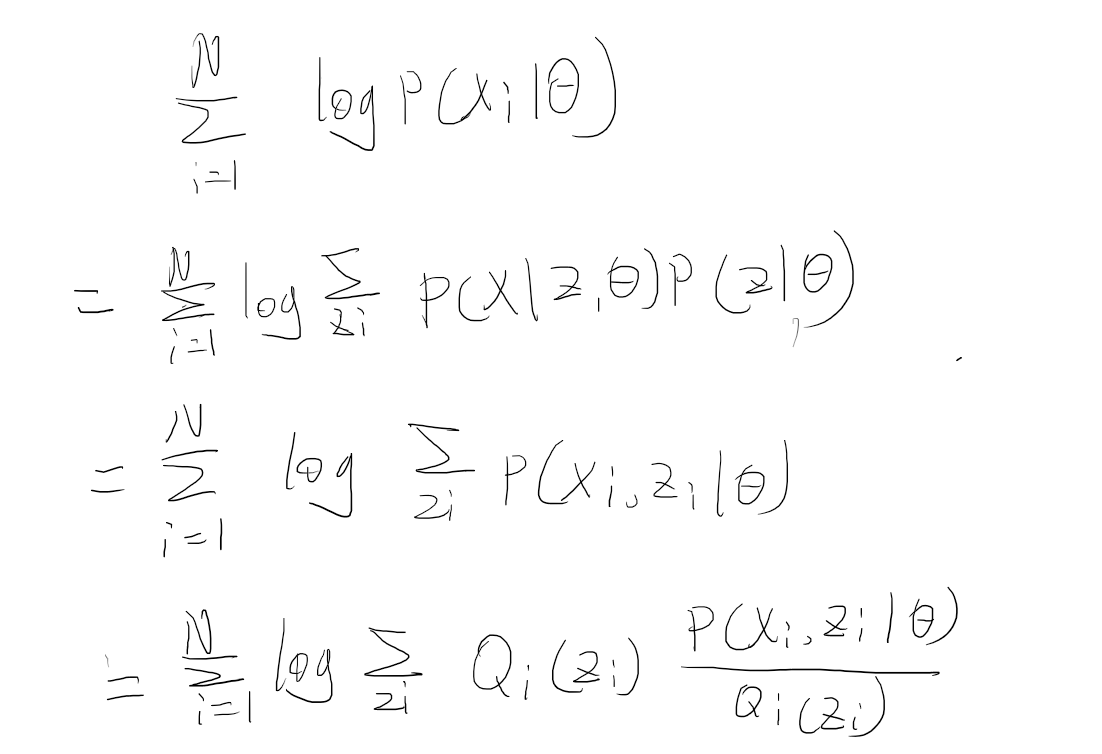 \sum_{i=1}^{N} \log P(x_i|\theta)
= \sum_{i=1}^{N} \log \sum_{z_i} P(x|z,\theta)P(z|\theta)
= \sum_{i=1}^{N} \log \sum_{z_i} P(x_i, z_i|\theta)
= \sum_{i=1}^{N} \log \sum_{z_i} Q_i(z_i) \frac{P(x_i, z_i|\theta)}{Q_i(z_i)}